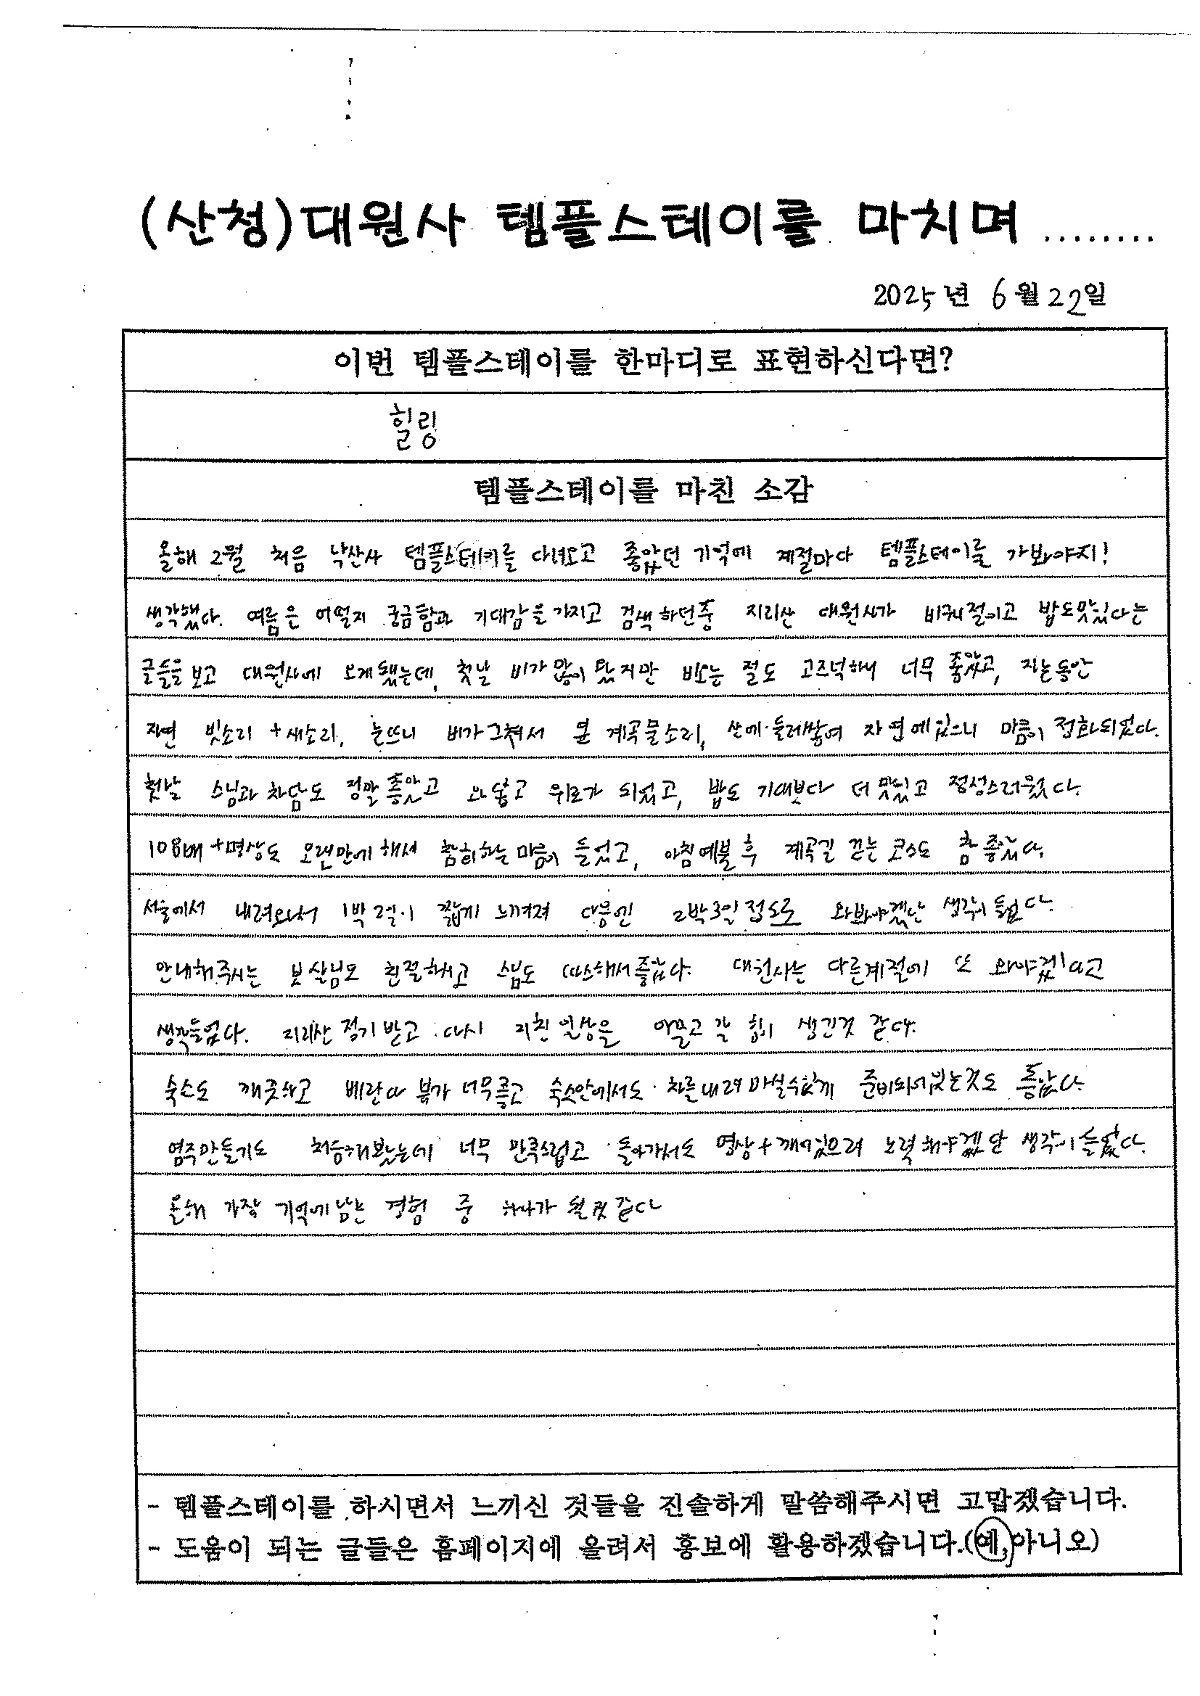 (산청)대원사 템플스테이를 마치며 ........
2025년 6월 22일
이번 템플스테이를 한마디로 표현하신다면?
힐링
템플스테이를 마친 소감
올해 2월 처음 낙산사 템플스테이를 다녀오고 좋았던 기억에 계절마다 템플스테이를 가봐야지!
생각했다. 여름은 어떨지 궁금함과 기대감을 가지고 검색하던중 지리산 대원사가 비구니절이고 밥도맛있다는
글들을 보고 대원사에 오게됐는데, 첫날 비가 많이 왔지만 비오는 절도 고즈넉해서 너무 좋았고, 자는동안
자연 빗소리 + 새소리, 눈뜨니 비가그쳐서 본 계곡물소리, 산에 둘러쌓여 자연에있으니 마음이 정화되었다.
첫날 스님과 차담도 정말 좋았고 와닿고 위로가 되었고, 밥도 기대보다 더 맛있고 정성스러웠다.
108배 + 명상도 오랜만에 해서 참회하는 마음이 들었고, 아침예불 후 계곡길 걷는 코스도 참 좋았다.
서울에서 내려와서 1박 2일이 짧게 느껴져 다음엔 2박3일 정도로 와봐야겠단 생각이 들었다.
안내해주시는 보살님도 친절하시고 스님도 따스해서 좋았다. 대원사는 다른계절에 또 와야겠다고
생각들었다. 지리산 정기 받고 다시 지친 일상을 아물고 갈 힘이 생긴것 같다.
숙소도 깨끗하고 베란다 뷰가 너무좋고 숙소안에서도 차를내려 마실수있게 준비되어있는것도 좋았다.
염주만들기도 처음해봤는데 너무 만족스럽고 돌아가서도 명상 + 깨어있으려 노력해야겠단 생각이 들었다.
올해 가장 기억에 남는 경험 중 하나가 될것 같다
- 템플스테이를 하시면서 느끼신 것들을 진솔하게 말씀해주시면 고맙겠습니다.
- 도움이 되는 글들은 홈페이지에 올려서 홍보에 활용하겠습니다.(예, 아니오)